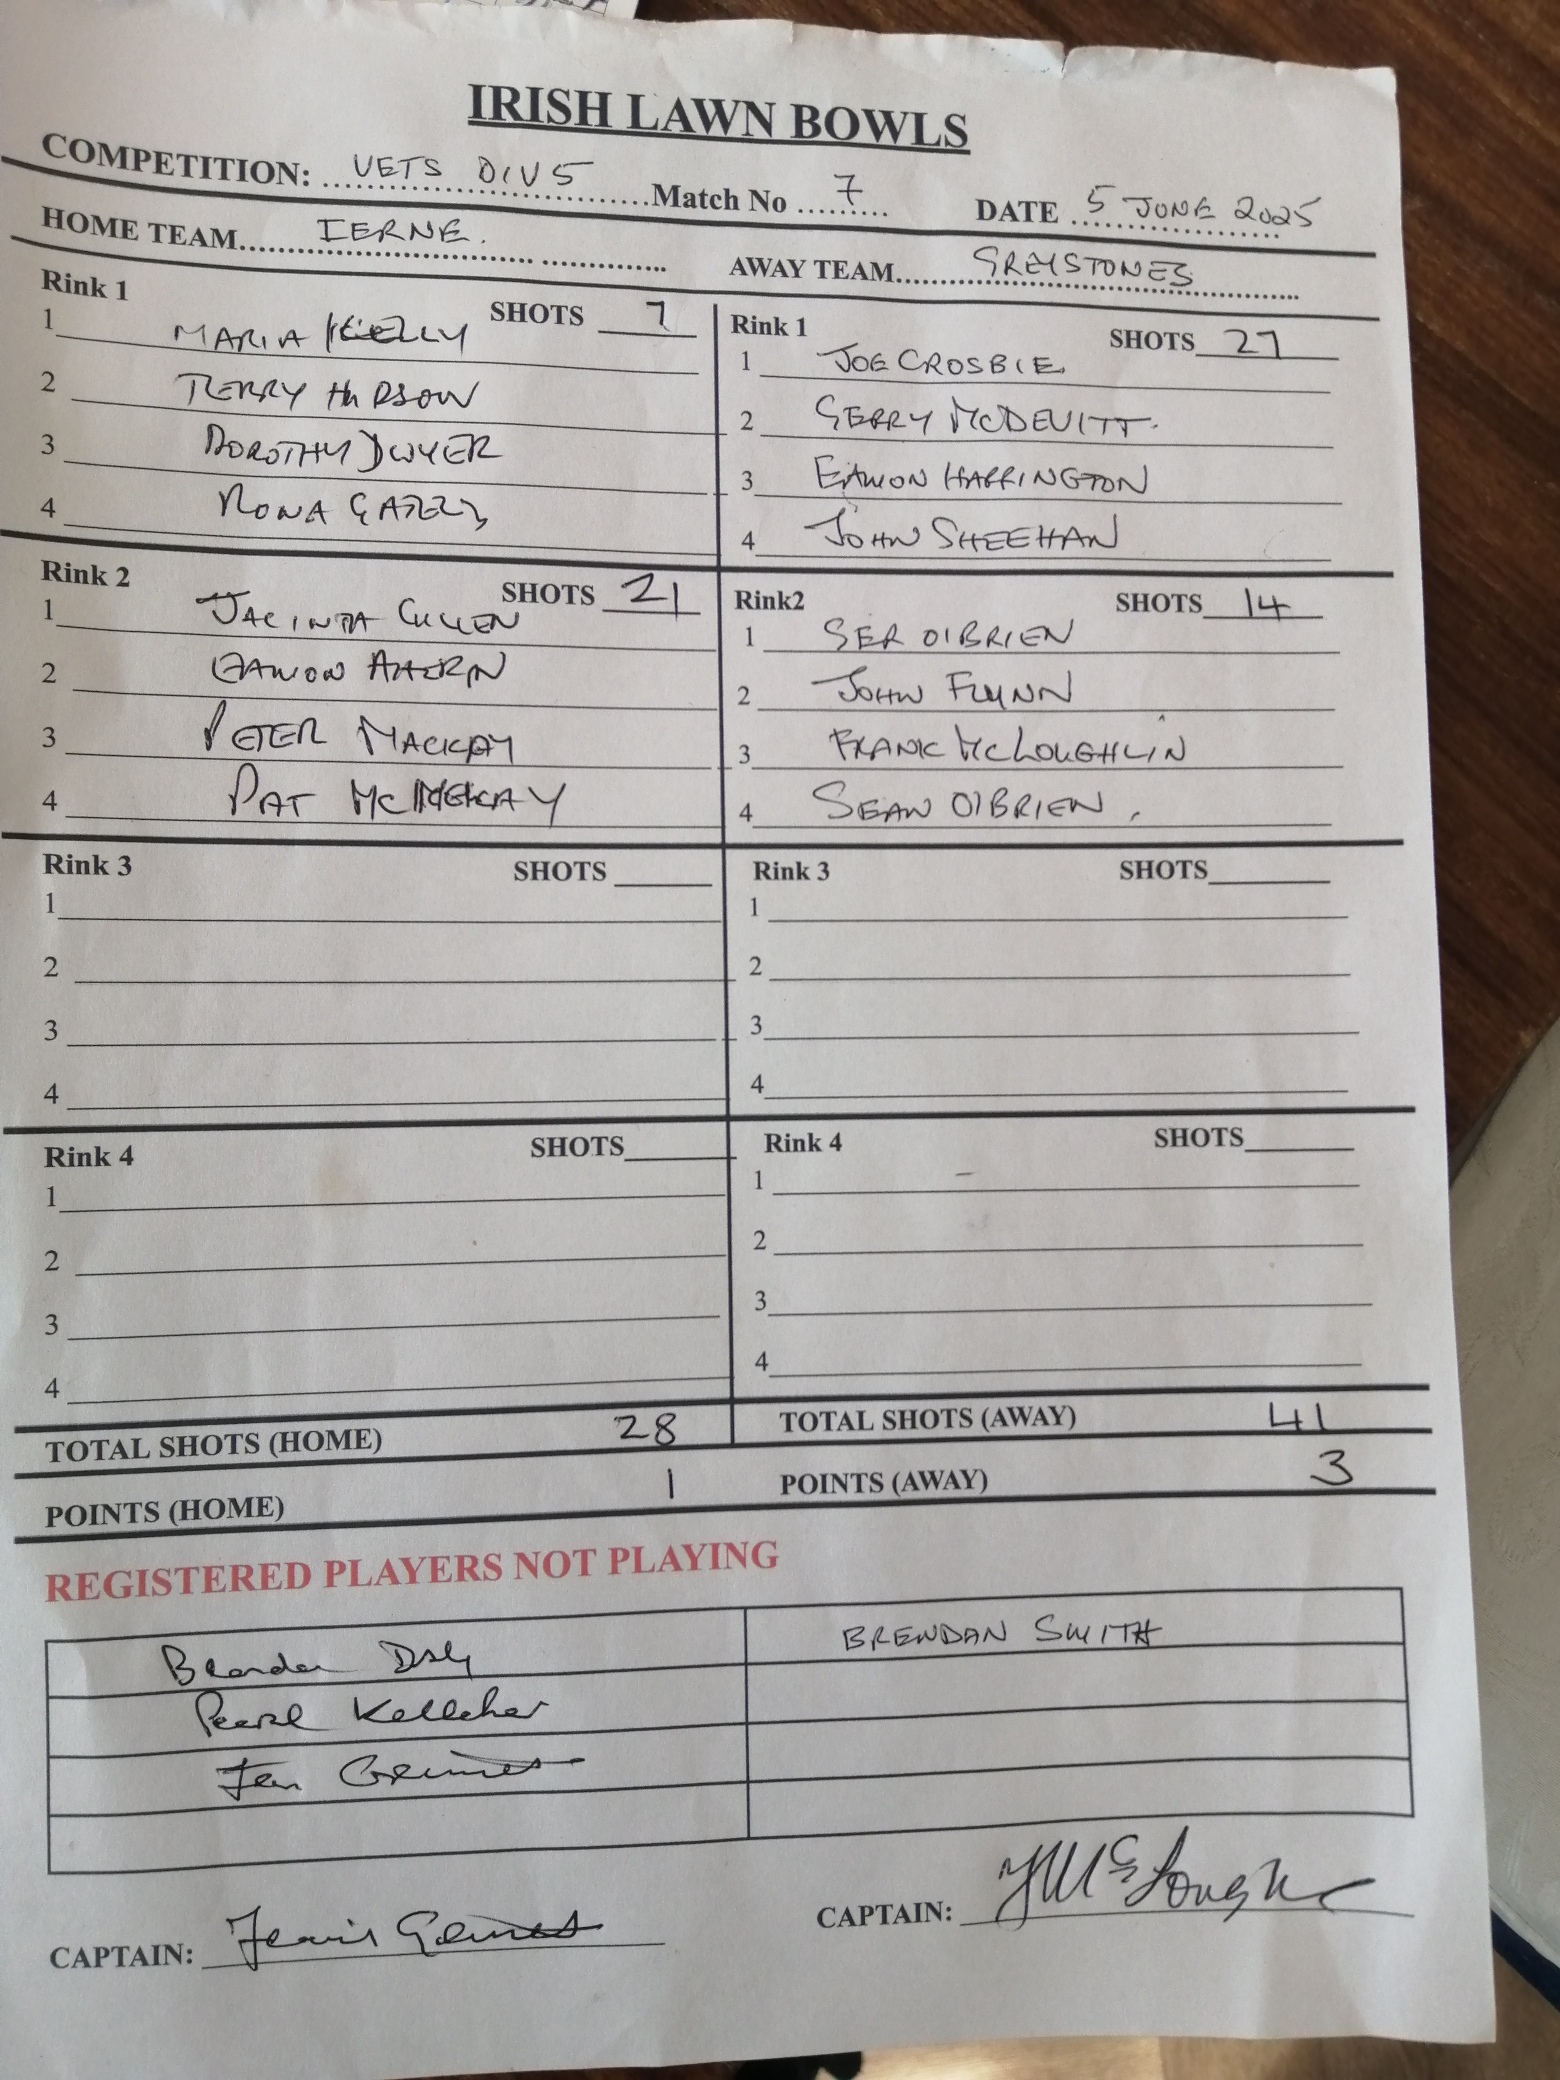 IRISH LAWN BOWLS
COMPETITION: VETS DIV 5 Match No 7 DATE 5 JUNE 2025
HOME TEAM IERNE. AWAY TEAM GREYSTONES
Rink 1 SHOTS 7
1 MARIA KIELLY
2 TERRY HUDSON
3 DOROTHY DWYER
4 RONA
Rink 1 SHOTS 27
1 JOE CROSBIE
2 GERRY MCDEVITT.
3 EAMON HARRINGTON
4 JOHN SHEEHAN
Rink 2 SHOTS 21
1 JACINTA CULLEN
2 EAMON AHERN
3 PETER MACKAY
4 PAT
Rink2 SHOTS 14
1 GER O'BRIEN
2 JOHN FLYNN
3 FRANK MCLOUGHLIN
4 SEAN O'BRIEN.
Rink 3 SHOTS
1
2
3
4
Rink 3 SHOTS
1
2
3
4
Rink 4 SHOTS
1
2
3
4
Rink 4 SHOTS
1
2
3
4
TOTAL SHOTS (HOME) 28 TOTAL SHOTS (AWAY) 41
POINTS (HOME) 1 POINTS (AWAY) 3
REGISTERED PLAYERS NOT PLAYING
Brendan Daly BRENDAN SMITH
Pearl Kelleher
CAPTAIN: CAPTAIN: